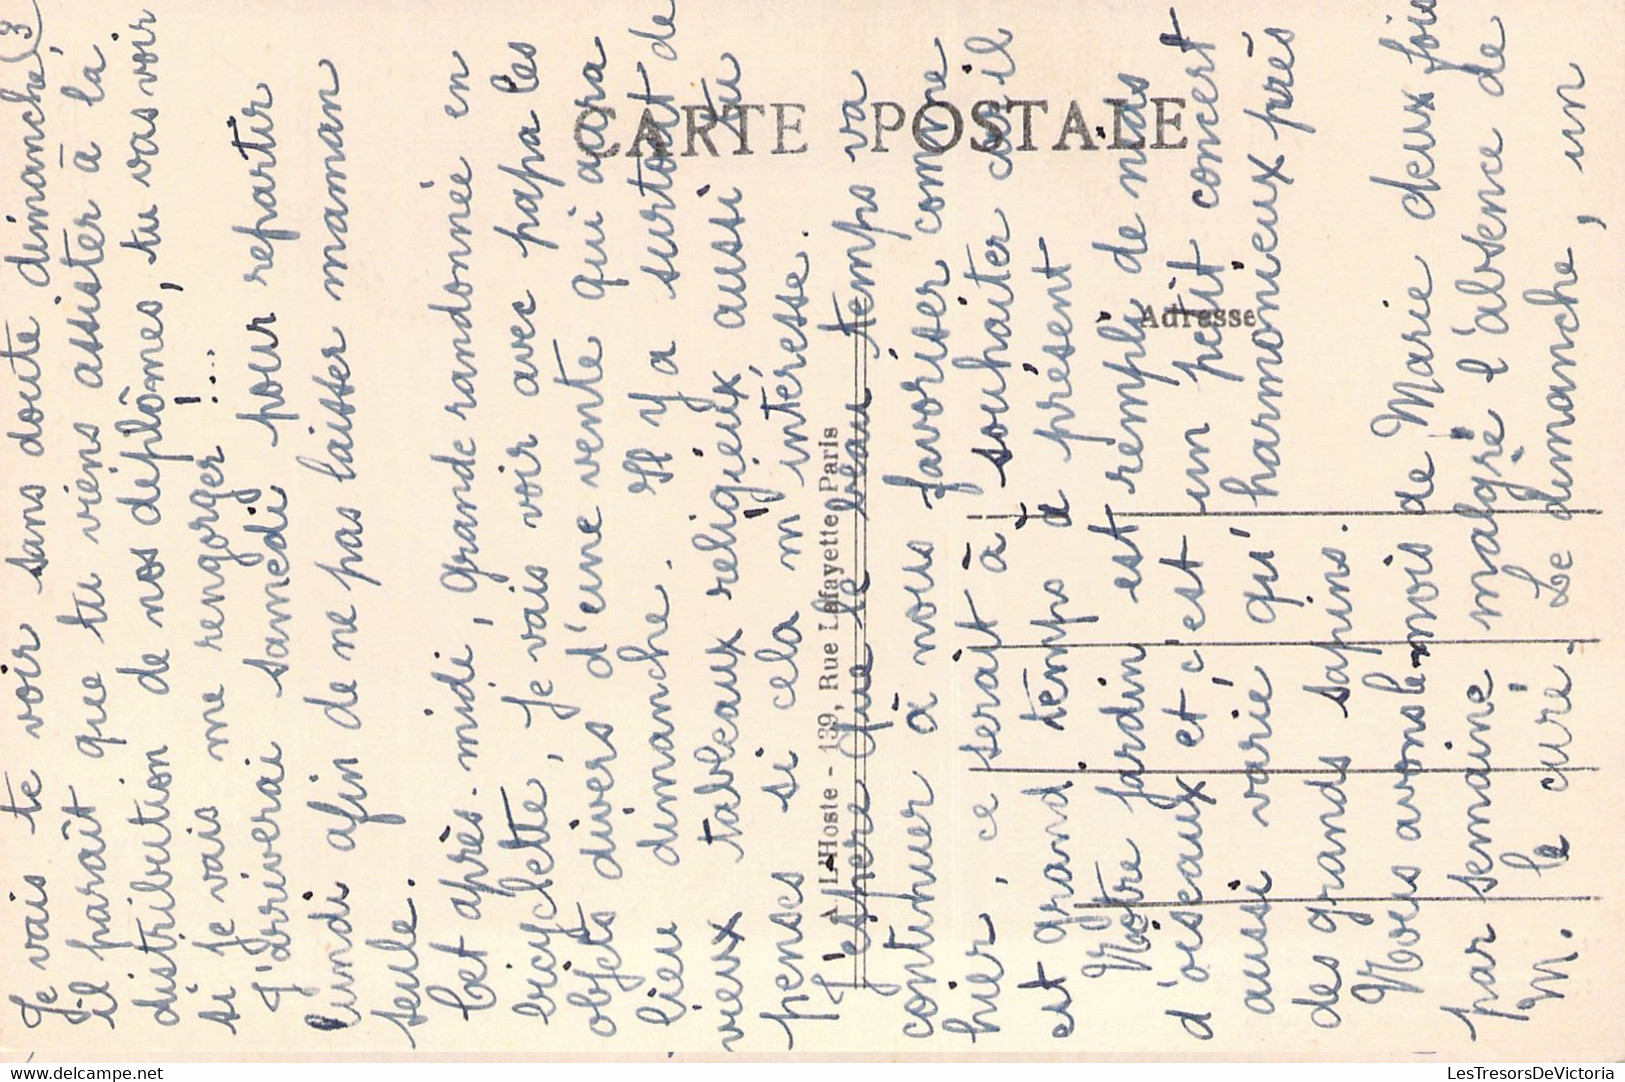 (3
Je vais te voir sans doute dimanche,
il paraît que tu viens assister à la
distribution de nos diplômes, tu vas voir
si je vais me rengorger !...
J'arriverai samedi pour repartir
lundi afin de ne pas laisser maman
seule.
Cet après-midi, grande randonnée en
bicyclette, je vais voir avec papa les
objets divers d'une vente qui aura
lieu dimanche. Il y a surtout de
vieux tableaux religieux, aussi tu
penses si cela m'intéresse.
J'espère que le beau temps va
continuer à nous favoriser comme
hier, ce serait à souhaiter car il
est grand temps à présent
Nôtre jardin est rempli de nids
d'oiseaux et c'est un petit concert
aussi varié qu'harmonieux près
des grands sapins.
Nous avons le mois de Marie deux fois
par semaine malgré l'absence de
M. le curé. Le dimanche, un
CARTE POSTALE
Adresse
L'Hoste - 139, Rue Lafayette Paris
delcampe.net
LesTresorsDeVictoria